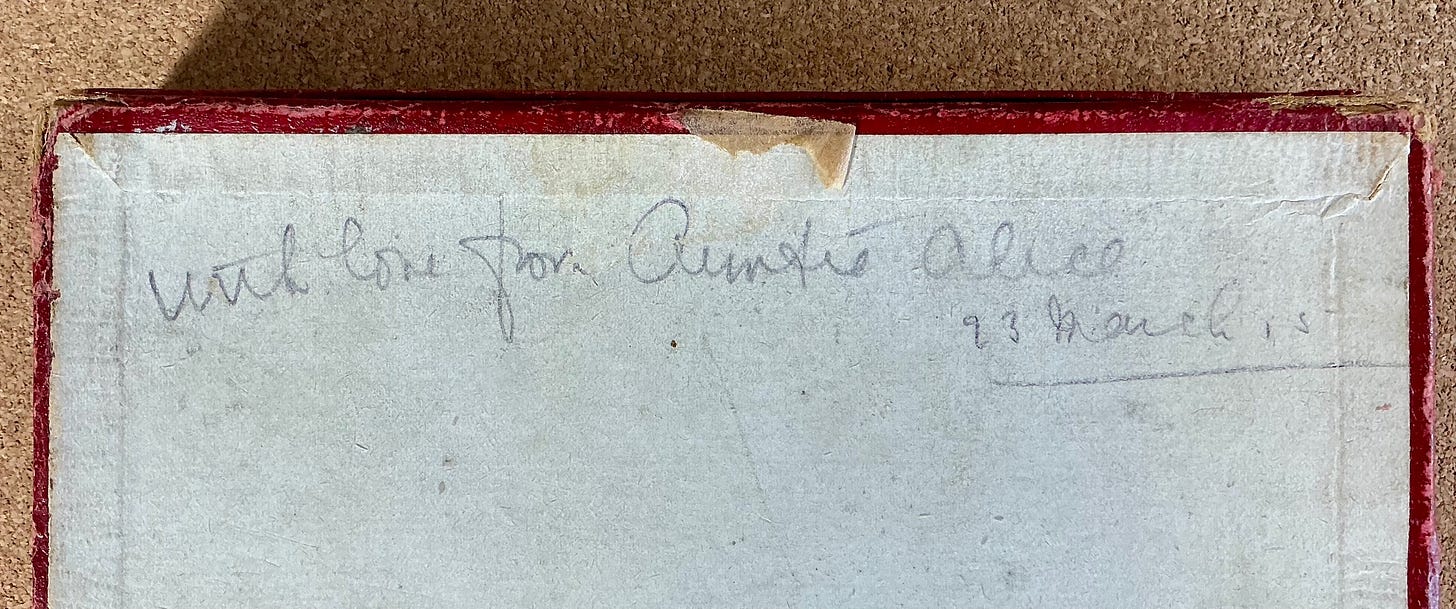 with love from Auntie Alice
23 March 15